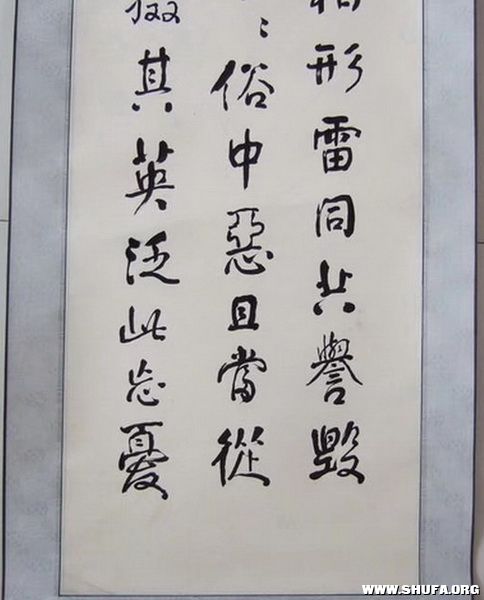 相形雷同共譽毀
、、俗中惡且當從
掇其英泛此忘憂
WWW.SHUFA.ORG